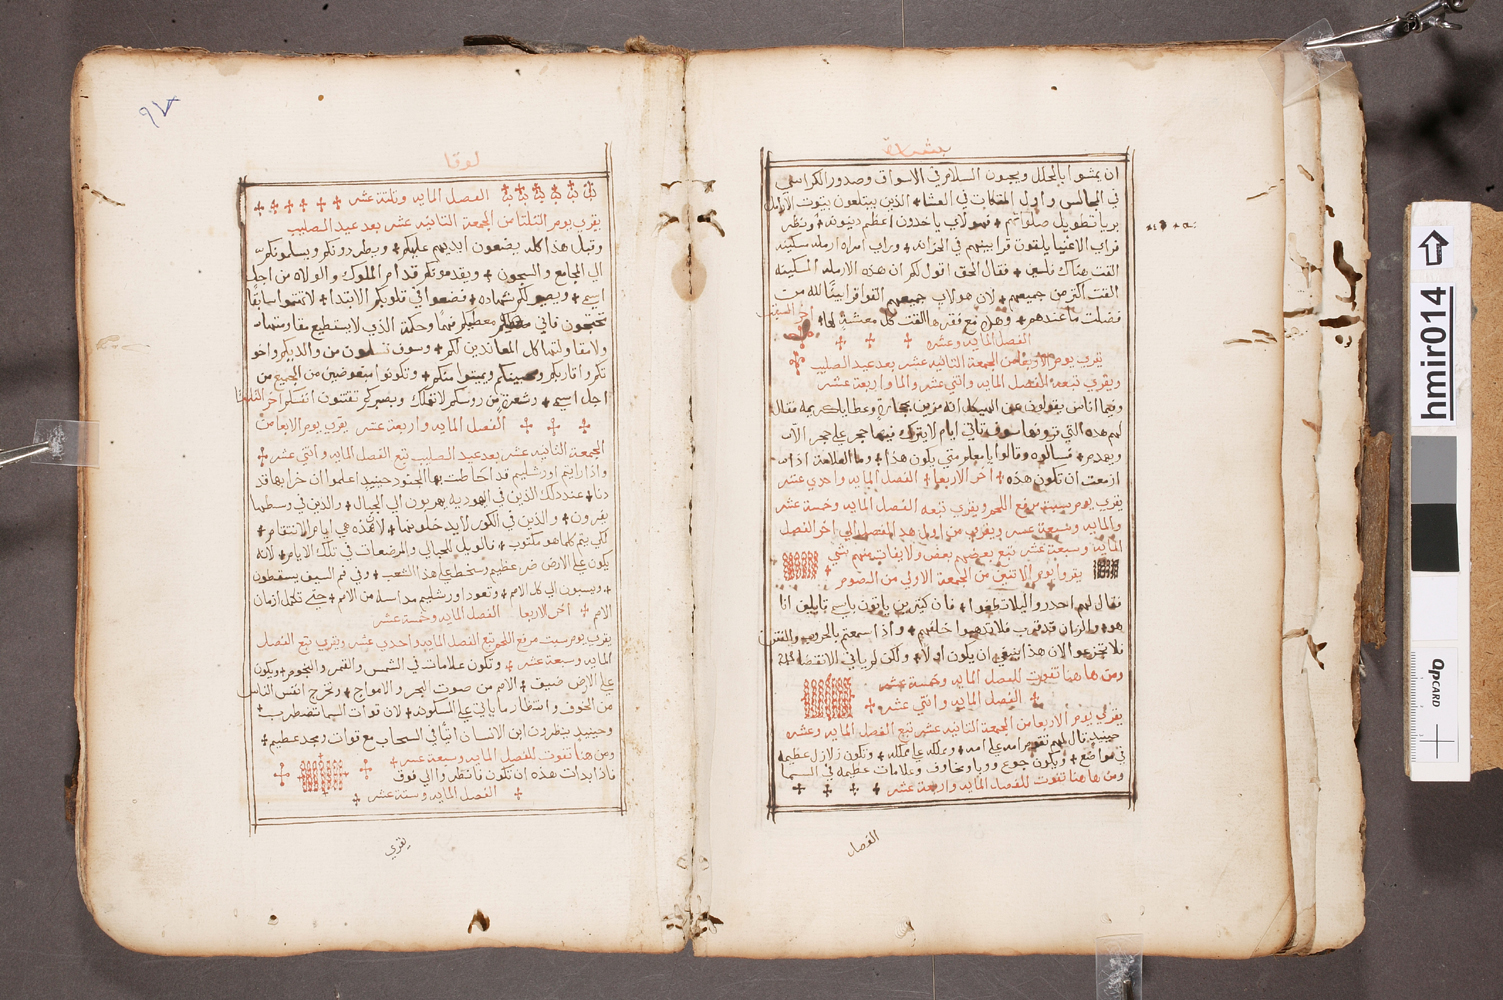 بشارة
ان يمشوا بالحلل ويحبون السلام في الاسواق وصدور الكراسي
في المجالس واول المتكات في العشا + الذين يبتلعون بيوت الارامل
بريا تطويل صلواتهم + فهولاي ياخدون اعظم دينونه + ونظر
فراي الاغنيا يلقون قرابينهم في الخزانه + وراي امراه ارمله مسكينه
القت هناك فلسين + فقال الحق اقول لكم ان هذه الارمله المسكينه
القت اكثر من جميعهم + لان هولاي جميعهم القوا قرابينا لله من
فضلت ما عندهم + وهذه مع فقرها القت كل معشة لها + اخر السبت
الفصل المايه وعشره
يقري يوم الاربعا من الجمعة التانيه عشر بعد عيد الصليب
ويقري تبعه الفصل المايه واتني عشر والمايه واربعة عشر
وفيما اناس يقولون عن الهيكل انه مزين بحجارة وعطايا كريمه فقال
لهم هذه التي ترونها سوف تاتي ايام لا يترك فيها حجر علي حجر الا
ويهدم + فسالوه وقالوا يا معلم متي يكون هذا + وما العلامة اذا ما
ازمعت ان تكون هذه + اخر الاربعا + الفصل المايه واحدي عشر
يقري يوم سبت مرفع اللحم ويقري تبعه الفصل المايه وخمسة عشر
والمايه وسبعة عشر ويقري من اول هذ الفصل الي اخر الفصل
المايه وسبعة عشر تبع بعضهم بعض ولا يفات منهم شي
يقروا يوم الاتنين من الجمعة الاولي من الصوم +
فقال لهم احدروا ليلا تطغوا + فان كثيرين ياتون باسمي قايلين انا
هو والزمان قد قرب فلا تدهبوا خلفهم + واذا سمعتم بالحروب والفتن
فلا تجزعوا لان هذا ينبغي ان يكون اولا + ولكن لم ياتي الانقضا
ومن ها هنا تفوت للفصل المايه وخمسة عشر
+ الفصل المايه واتني عشر +
يقري يوم الاربعا من الجمعة التانيه عشر تبع الفصل المايه وعشره
حينيد قال لهم تقوم امه علي امه + ومملكه علي مملكه + وتكون زلازل عظيمه
في مواضع + ويكون جوع ووبا ومخاوف وعلامات عظيمه في السما
ومن ها هنا تفوت للفصل المايه واربعة عشر
الفصل
٩٧
لوقا
الفصل المايه وتلتة عشر + + + + + +
يقري يوم التلتا من الجمعة التانيه عشر بعد عيد الصليب
وقبل هذا كله يضعون ايديهم عليكم + ويطردونكم ويسلمونكم
الي المجامع والسجون + ويقدمونكم قدام الملوك والولاه من اجل
اسمي + ويصير لكم شهاده + فضعوا في قلوبكم الابتدا + لا تهتموا سابقا
تحتجون فاني معطيكم فما وحكمة الذي لا يستطيع مقاومتها
ولا مقاولتها كل المعاندين لكم + وسوف تسلمون من والديكم واخو
تكم واقاربكم ويميتوا منكم + وتكونوا مبغوضين من الجميع من
اجل اسمي + وشعرة من روسكم لا تهلك وبصبركم تقتنون انفسكم اخر التلتا
+ + + الفصل المايه واربعة عشر يقري يوم الاربعا من
الجمعة التانيه عشر بعد عيد الصليب تبع الفصل المايه واتني عشر +
واذا رايتم اورشليم قد احاطت بها الجنود حينيد اعلموا ان خرابها قد
دنا + عند دلك الذين في اليهوديه يهربون الي الجبال + والذين في وسطها
يفرون + والذين في الكور لا يدخلونها + لان هذه هي ايام الانتقام +
لكي يتم كلما هو مكتوب + فالويل للحبالي والمرضعات في تلك الايام + لانه
يكون علي الارض ضر عظيم وسخط علي هذا الشعب + وفي فم السيف يسقطون
+ ويسبون الي كل الامم + وتعود اورشليم مداسة من الامم + حتي تكمل ازمان
الامم + اخر الاربعا الفصل المايه وخمسة عشر
يقري يوم سبت مرفع اللحم تبع الفصل المايه واحدي عشر ويقري تبع الفصل
المايه وسبعة عشر + وتكون علامات في الشمس والقمر والنجوم + ويكون
علي الارض ضيق + الامم من صوت البحر والامواج + وتخرج انفس الناس
من الخوف وانتظار ما ياتي علي المسكونه + لان قوات السما تضطرب +
وحينيد ينظرون ابن الانسان اتيا في السحاب مع قوات ومجد عظيم +
ومن هنا تفوت للفصل المايه وسبعة عشر +
فاذا بدات هذه ان تكون فانظروا الي فوق
+ الفصل المايه وستة عشر +
يقري
hmir014
QPCARD